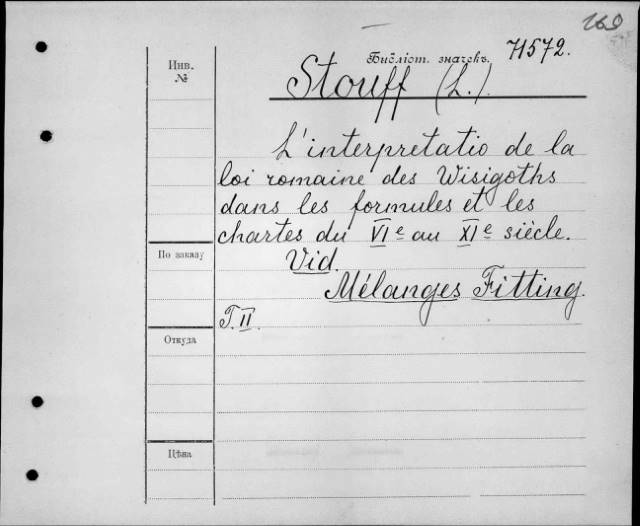 260
Инв.
№
Библіот. значекъ.
71572.
Stouff (L.).
L'interpretatio de la
loi romaine des Wisigoths
dans les formules et les
chartes du VIe au XIe siècle.
Vid.
По заказу
Mélanges Fitting.
T. II.
Откуда
Цѣна